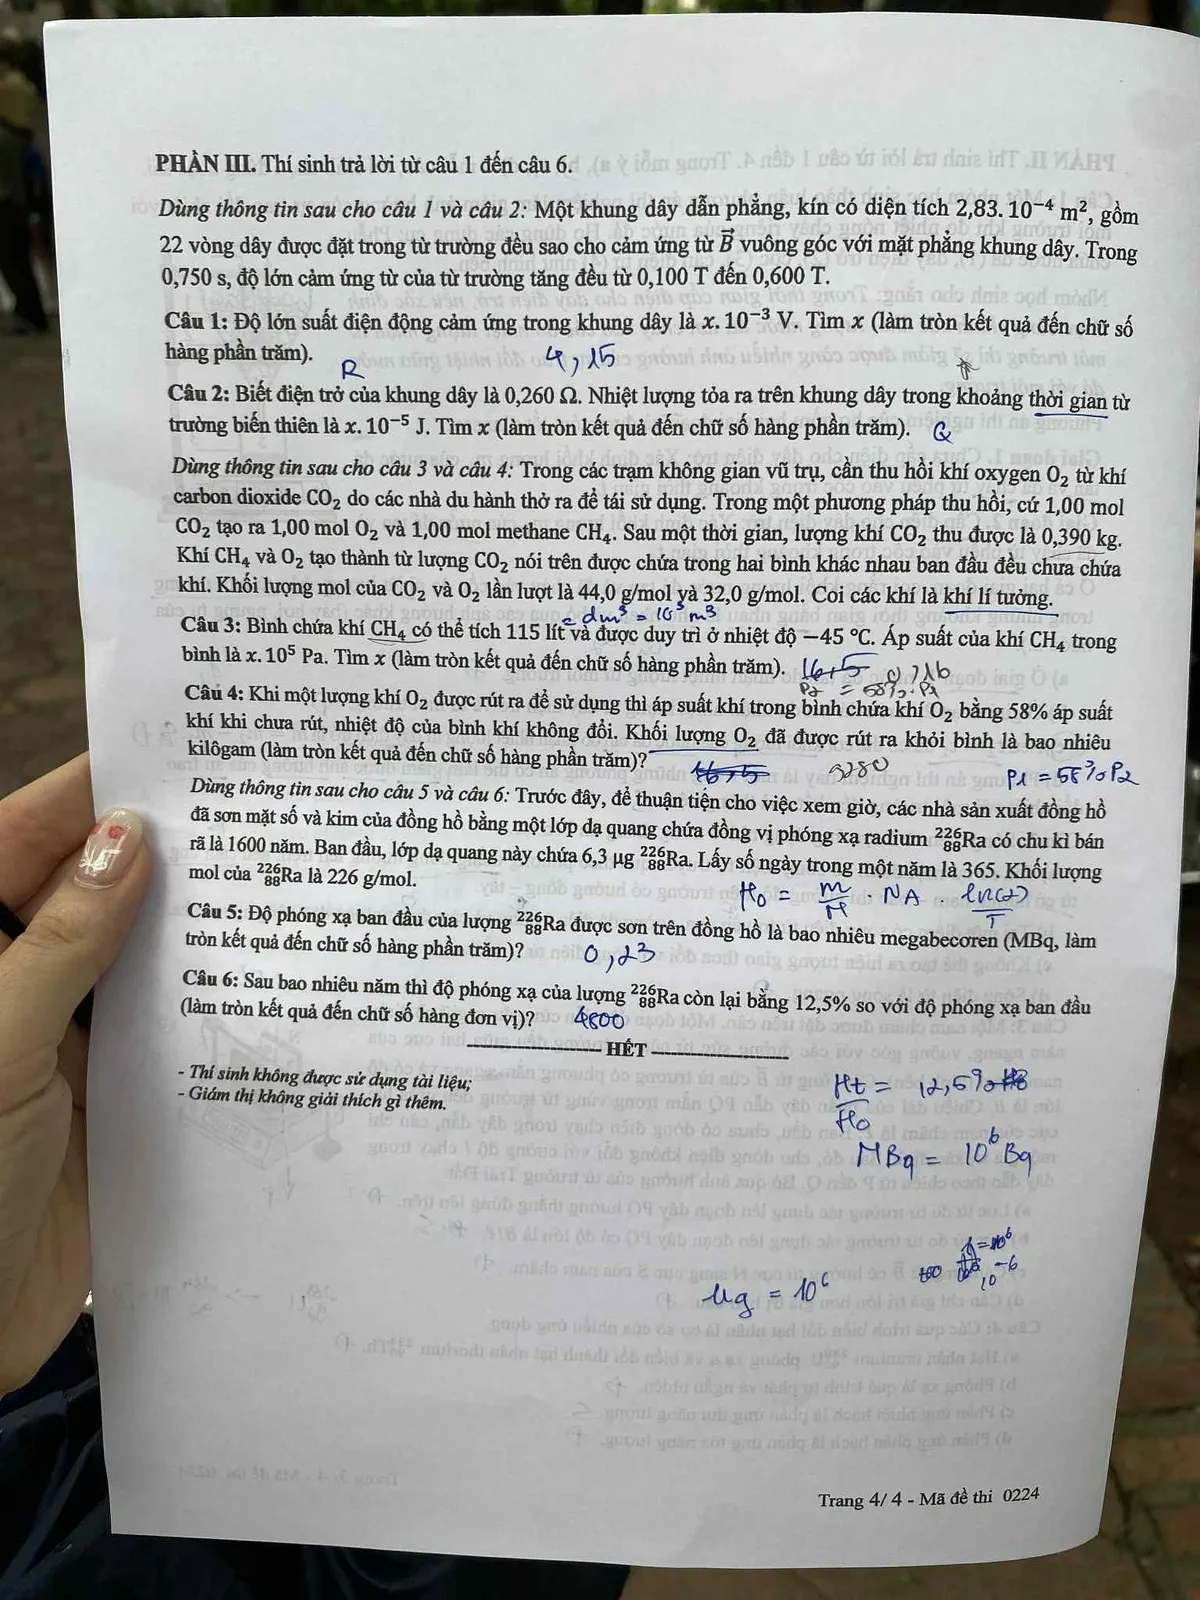 PHẦN III. Thí sinh trả lời từ câu 1 đến câu 6.
Dùng thông tin sau cho câu 1 và câu 2: Một khung dây dẫn phẳng, kín có diện tích 2,83. 10⁻⁴ m², gồm
22 vòng dây được đặt trong từ trường đều sao cho cảm ứng từ B⃗ vuông góc với mặt phẳng khung dây. Trong
0,750 s, độ lớn cảm ứng từ của từ trường tăng đều từ 0,100 T đến 0,600 T.
Câu 1: Độ lớn suất điện động cảm ứng trong khung dây là x. 10⁻³ V. Tìm x (làm tròn kết quả đến chữ số
hàng phần trăm).
4,15
R
Câu 2: Biết điện trở của khung dây là 0,260 Ω. Nhiệt lượng tỏa ra trên khung dây trong khoảng thời gian từ
trường biến thiên là x. 10⁻⁵ J. Tìm x (làm tròn kết quả đến chữ số hàng phần trăm).
Q
Dùng thông tin sau cho câu 3 và câu 4: Trong các trạm không gian vũ trụ, cần thu hồi khí oxygen O₂ từ khí
carbon dioxide CO₂ do các nhà du hành thở ra để tái sử dụng. Trong một phương pháp thu hồi, cứ 1,00 mol
CO₂ tạo ra 1,00 mol O₂ và 1,00 mol methane CH₄. Sau một thời gian, lượng khí CO₂ thu được là 0,390 kg.
Khí CH₄ và O₂ tạo thành từ lượng CO₂ nói trên được chứa trong hai bình khác nhau ban đầu đều chưa chứa
khí. Khối lượng mol của CO₂ và O₂ lần lượt là 44,0 g/mol và 32,0 g/mol. Coi các khí là khí lí tưởng.
= dm³ = 10³ m³
Câu 3: Bình chứa khí CH₄ có thể tích 115 lít và được duy trì ở nhiệt độ −45 °C. Áp suất của khí CH₄ trong
bình là x. 10⁵ Pa. Tìm x (làm tròn kết quả đến chữ số hàng phần trăm).
16,5
0,16
P₂ = 58%.P₁
Câu 4: Khi một lượng khí O₂ được rút ra để sử dụng thì áp suất khí trong bình chứa khí O₂ bằng 58% áp suất
khí khi chưa rút, nhiệt độ của bình khí không đổi. Khối lượng O₂ đã được rút ra khỏi bình là bao nhiêu
kilôgam (làm tròn kết quả đến chữ số hàng phần trăm)?
16,5
P₁ = 58%P₂
Dùng thông tin sau cho câu 5 và câu 6: Trước đây, để thuận tiện cho việc xem giờ, các nhà sản xuất đồng hồ
đã sơn mặt số và kim của đồng hồ bằng một lớp dạ quang chứa đồng vị phóng xạ radium ²²⁶₈₈Ra có chu kì bán
rã là 1600 năm. Ban đầu, lớp dạ quang này chứa 6,3 μg ²²⁶₈₈Ra. Lấy số ngày trong một năm là 365. Khối lượng
mol của ²²⁶₈₈Ra là 226 g/mol.
H₀ = m/M . NA . ln(2)/T
Câu 5: Độ phóng xạ ban đầu của lượng ²²⁶₈₈Ra được sơn trên đồng hồ là bao nhiêu megabecơren (MBq, làm
tròn kết quả đến chữ số hàng phần trăm)?
0,23
Câu 6: Sau bao nhiêu năm thì độ phóng xạ của lượng ²²⁶₈₈Ra còn lại bằng 12,5% so với độ phóng xạ ban đầu
(làm tròn kết quả đến chữ số hàng đơn vị)?
4800
-------------------- HẾT --------------------
- Thí sinh không được sử dụng tài liệu;
- Giám thị không giải thích gì thêm.
Ht/H₀ = 12,5%
MBq = 10⁶ Bq
μg = 10⁶
10⁻⁶
Trang 4/ 4 - Mã đề thi 0224